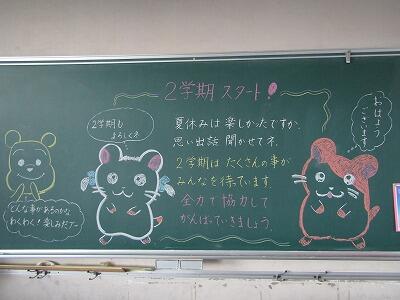 2学期 スタート!
2学期も
よろしくネ
おはよう
ございます!
夏休みは 楽しかたですか.
思い出話 聞かせてネ.
2学期は たくさんの事が
みんなを待ています.
全力で協力して
がんばっていきましょう.
どんな事があるのかな
わくわく!楽しみだナー